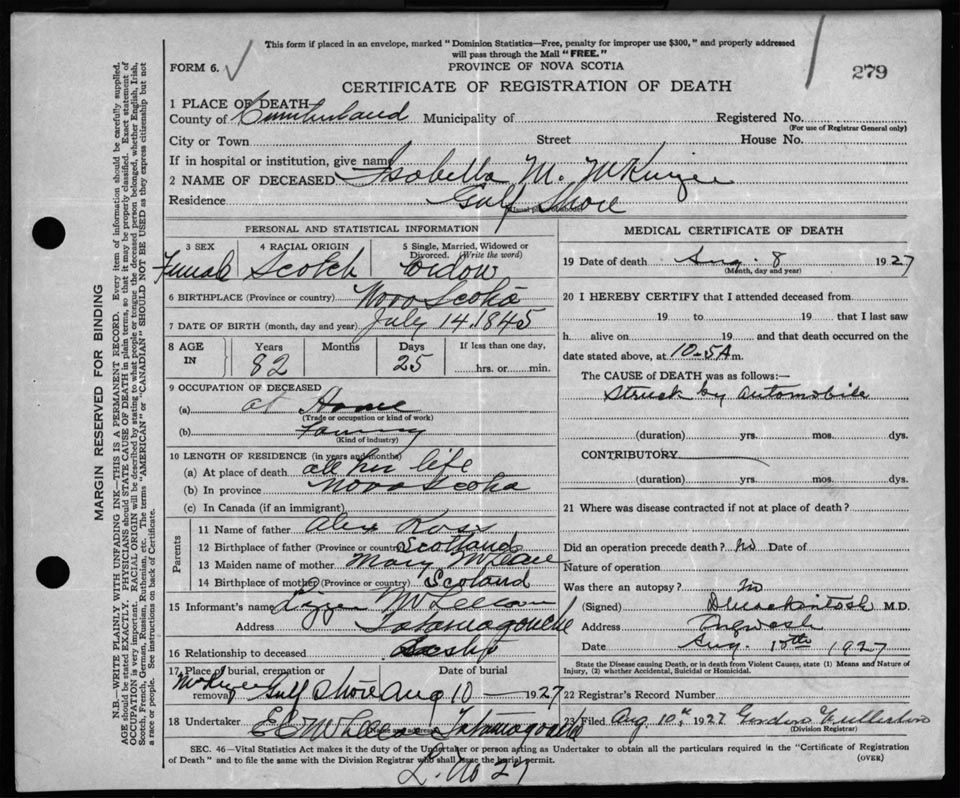 This form if placed in an envelope, marked "Dominion Statistics—Free, penalty for improper use $300," and properly addressed
will pass through the Mail "FREE."
FORM 6. ✓
PROVINCE OF NOVA SCOTIA
279
CERTIFICATE OF REGISTRATION OF DEATH
1 PLACE OF DEATH
County of Cumberland Municipality of Registered No.
(For use of Registrar General only)
City or Town Street House No.
If in hospital or institution, give name
2 NAME OF DECEASED Isabella M. McKenzie
Residence Gulf Shore
PERSONAL AND STATISTICAL INFORMATION
3 SEX 4 RACIAL ORIGIN 5 Single, Married, Widowed or Divorced. (Write the word)
Female Scotch Widow
6 BIRTHPLACE (Province or country) Nova Scotia
7 DATE OF BIRTH (month, day and year) July 14. 1845
8 AGE IN Years Months Days If less than one day,
82 25 hrs. or min.
9 OCCUPATION OF DECEASED
(a) at Home
(Trade or occupation or kind of work)
(b)
(Kind of industry)
10 LENGTH OF RESIDENCE (in years and months)
(a) At place of death all her life
(b) In province Nova Scotia
(c) In Canada (if an immigrant)
Parents
11 Name of father Alex Ross
12 Birthplace of father (Province or country) Scotland
13 Maiden name of mother Mary
14 Birthplace of mother (Province or country) Scoland
15 Informant's name Lizzie
Address Tatamagouche
16 Relationship to deceased
17 Place of burial, cremation or removal Date of burial
Gulf Shore Aug 10 1927
18 Undertaker Tatamagouche
(Name and address)
MEDICAL CERTIFICATE OF DEATH
19 Date of death Aug. 8 1927
(Month, day and year)
20 I HEREBY CERTIFY that I attended deceased from
19 to 19 that I last saw
h alive on 19 and that death occurred on the
date stated above, at 10-5 A m.
The CAUSE of DEATH was as follows:—
Struck by automobile
(duration) yrs. mos. dys.
CONTRIBUTORY
(duration) yrs. mos. dys.
21 Where was disease contracted if not at place of death?
Did an operation precede death? No Date of
Nature of operation
Was there an autopsy? No
(Signed) D Mackintosh M.D.
Address Pugwash
Date Aug. 1927
State the Disease causing Death, or in death from Violent Causes, state (1) Means and Nature of
Injury, (2) whether Accidental, Suicidal or Homicidal.
22 Registrar's Record Number
23 Filed Aug. 10th, 1927 Gordon Fullerton
(Division Registrar)
SEC. 46—Vital Statistics Act makes it the duty of the Undertaker or person acting as Undertaker to obtain all the particulars required in the "Certificate of Registration
of Death" and to file the same with the Division Registrar who shall issue the burial permit.
(OVER)
L. No 27
MARGIN RESERVED FOR BINDING
N.B.—WRITE PLAINLY WITH UNFADING INK—THIS IS A PERMANENT RECORD. Every item of information should be carefully supplied.
AGE should be stated EXACTLY. PHYSICIANS should STATE CAUSE OF DEATH in plain terms, so that it may be properly classified. Exact statement of
OCCUPATION is very important. RACIAL ORIGIN will be described by stating to what people or tongue the deceased person belonged, whether English, Irish,
Scotch, French, German, Russian, Ruthenian, etc. The terms "AMERICAN" or "CANADIAN" SHOULD NOT BE USED as they express citizenship but not
a race or people. See instructions on back of Certificate.